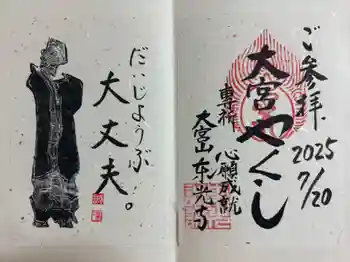 だいじょうぶ
大丈夫。
ご参拝
2025
7/20
大宮やくし
専祈
心願成就
大宮山東光寺